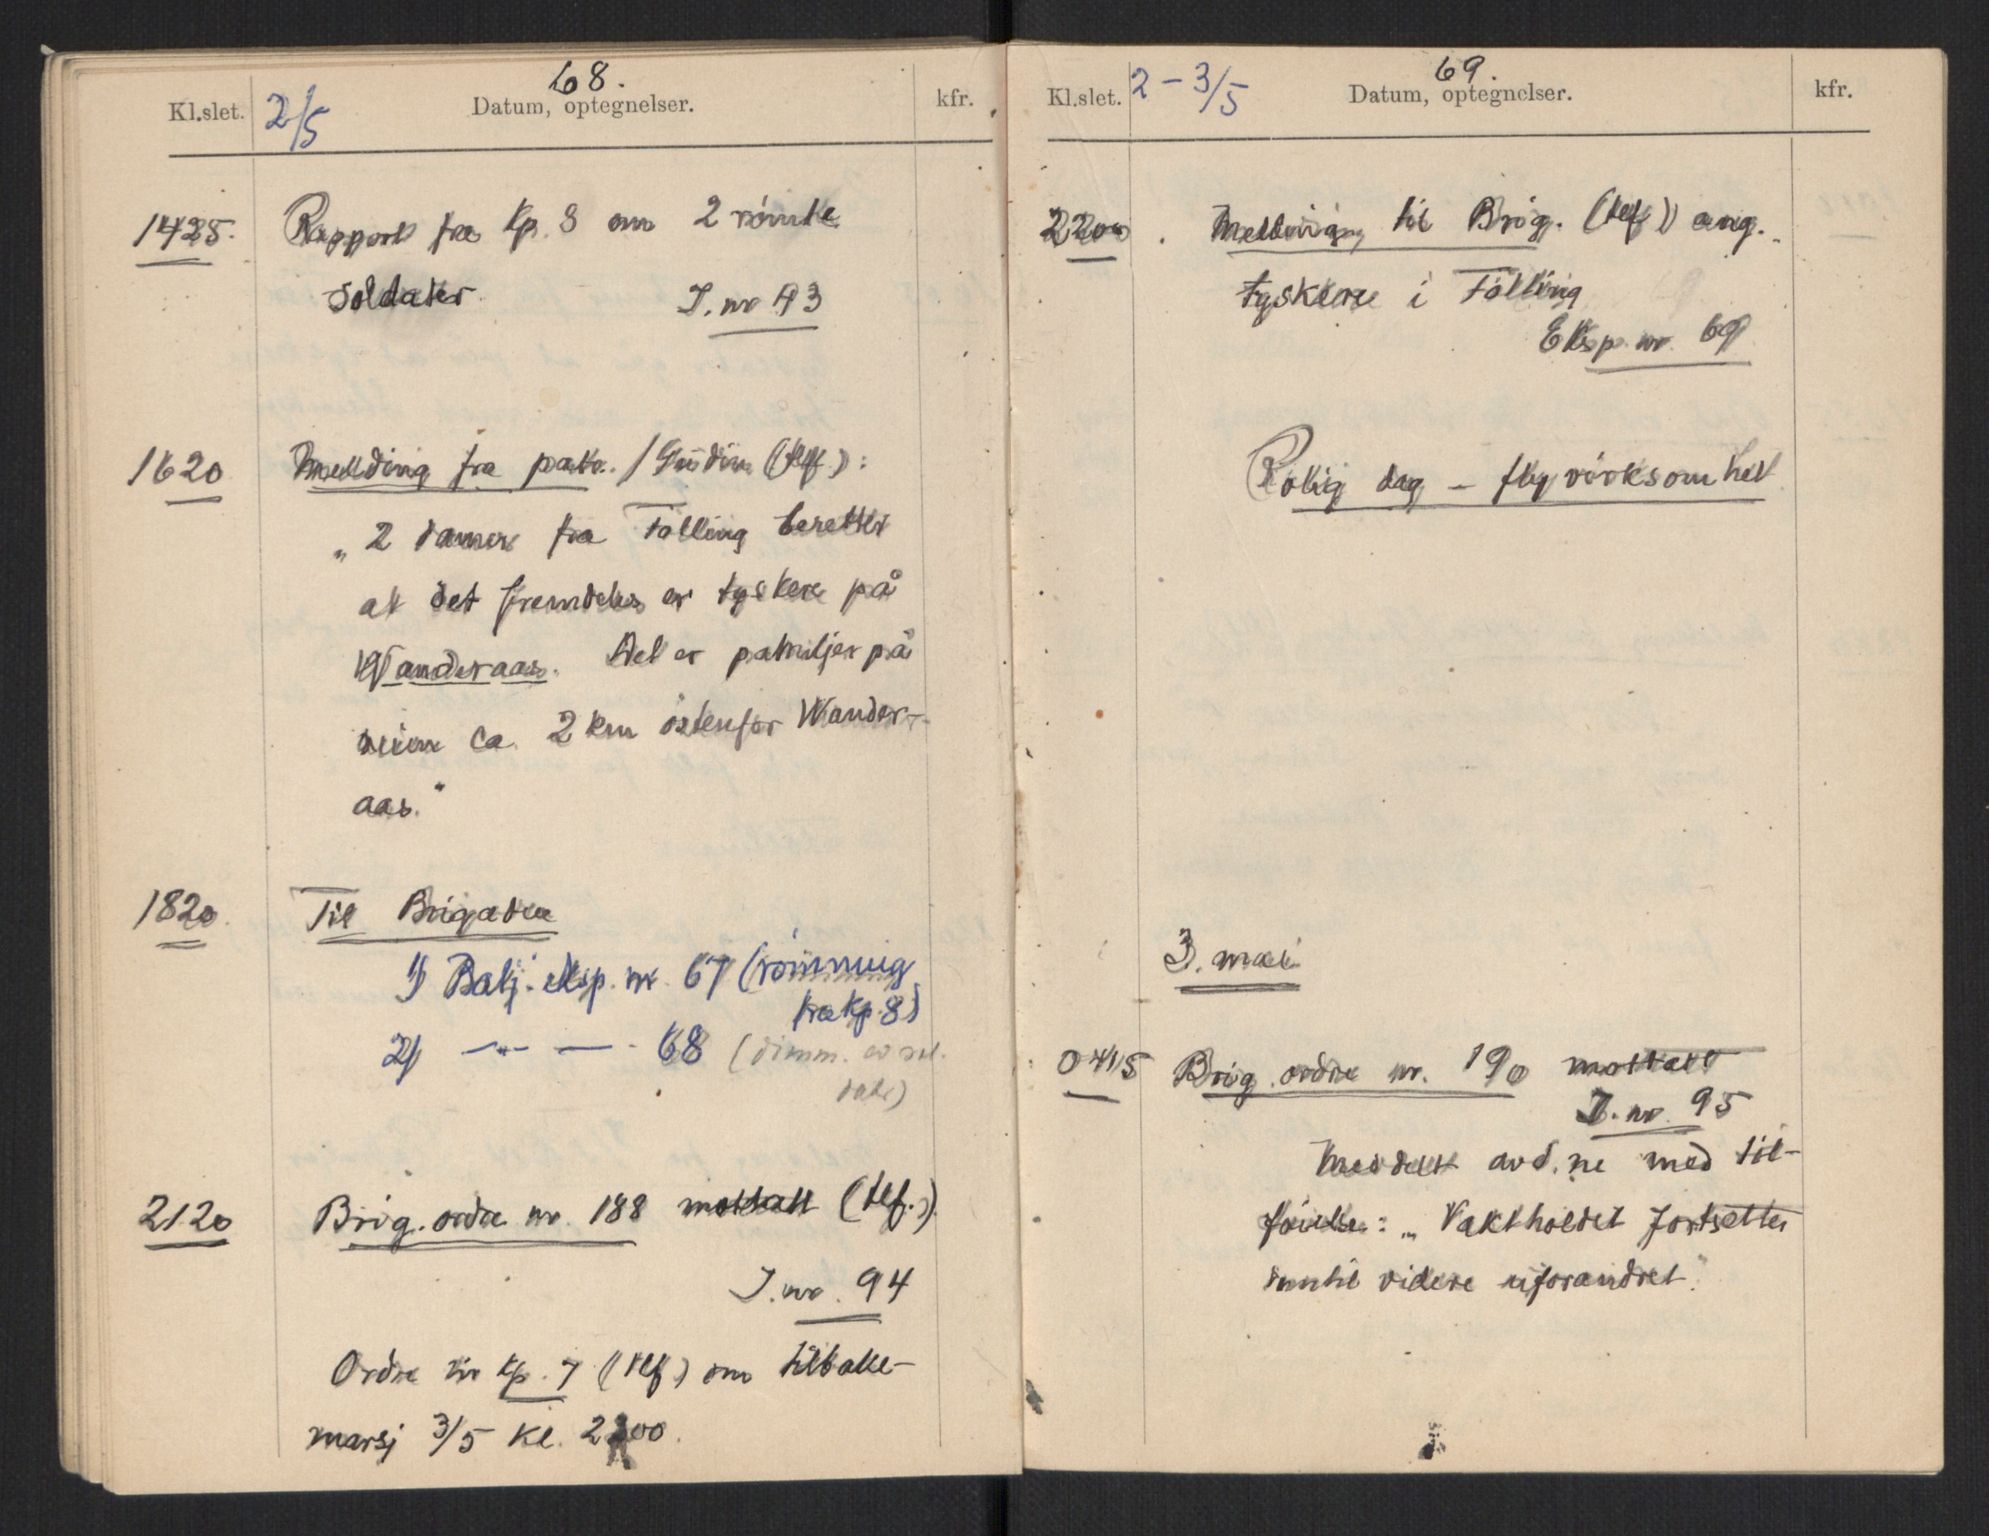 68.
Kl.slet. 2/5 Datum, optegnelser. kfr.
1425. Rapport fra Kp. 8 om 2 römte
soldater. J. nr 93
1620 Melding fra patr. / Gudim (tlf.):
„2 damer fra Fölling beretter
at det fremdeles er tyskere på
Wanderaas. Det er patruljer på
veien ca. 2 km östenfor Wander-
aas."
1820. Til Brigaden
1) Batj. eksp. nr. 67 (römning
fra Kp. 8)
2) —"— — 68 (dimm. av sol-
dater)
2120 Brig. ordre nr. 188 mottatt (tlf.)
J. nr. 94
Ordre til Kp. 7 (tlf) om tilbake-
marsj 3/5 kl. 2200.
69.
Kl.slet. 2 - 3/5 Datum, optegnelser. kfr.
2200. Melding til Brig. (tlf) ang.
tyskere i Fölling
Eksp. nr. 69
Rolig dag – flyvirksomhet
3. mai
0415 Brig. ordre nr. 190 mottatt
J. nr. 95
Meddelt avd.ne med til-
föielse: „Vaktholdet fortsetter
inntil videre uforandret."